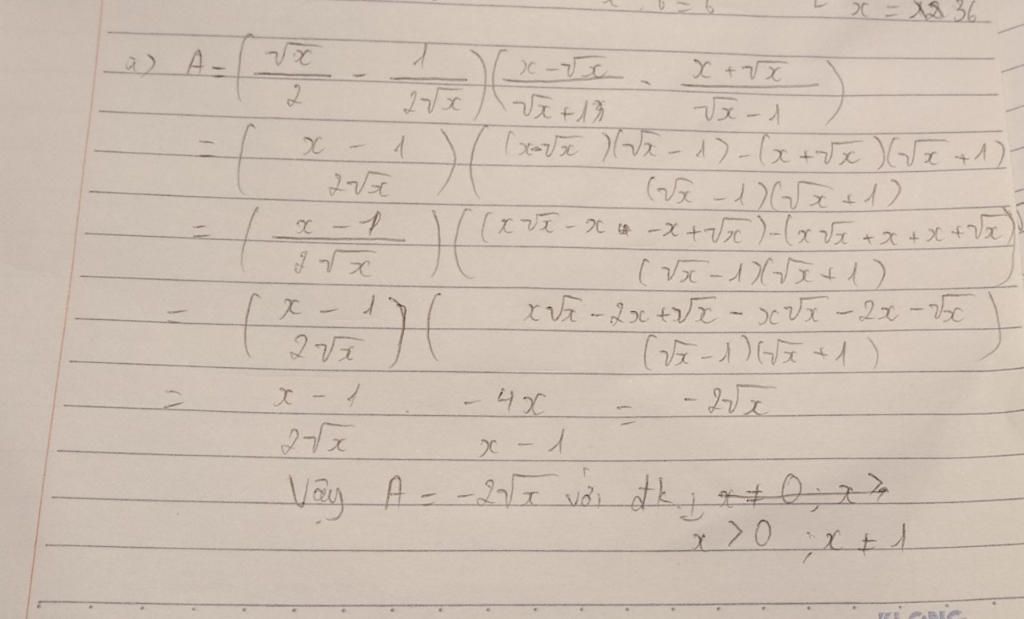 x = 36
a) A = (√x/2 - 1/2√x)(x-√x/√x+1 - x+√x/√x-1)
= (x - 1/2√x)((x-√x)(√x - 1) - (x+√x)(√x+1)/(√x - 1)(√x + 1))
= (x - 1/2√x)((x√x - x - x + √x) - (x√x + x + x + √x)/(√x - 1)(√x + 1))
= (x - 1/2√x)(x√x - 2x + √x - x√x - 2x - √x/(√x - 1)(√x + 1))
= x - 1/2√x . -4x/x - 1 = -2√x
Vậy A = -2√x với đk: x ≠ 0; x >
x > 0 ; x ≠ 1